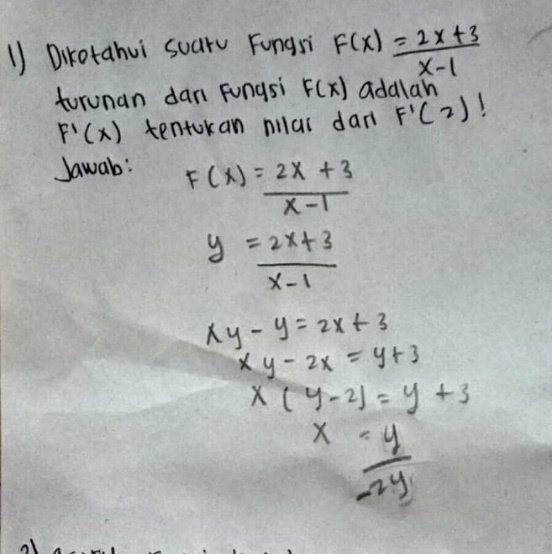 1) Diketahui suatu Fungsi F(x) = 2x+3
x-1
turunan dari Fungsi F(x) adalah
F'(x) tentukan nilai dari F'(2)!
Jawab:
F(x) = 2x +3
x-1
y = 2x+3
x-1
xy - y = 2x+3
xy - 2x = y+3
x (y-2) = y +3
x = y
-2y
2)